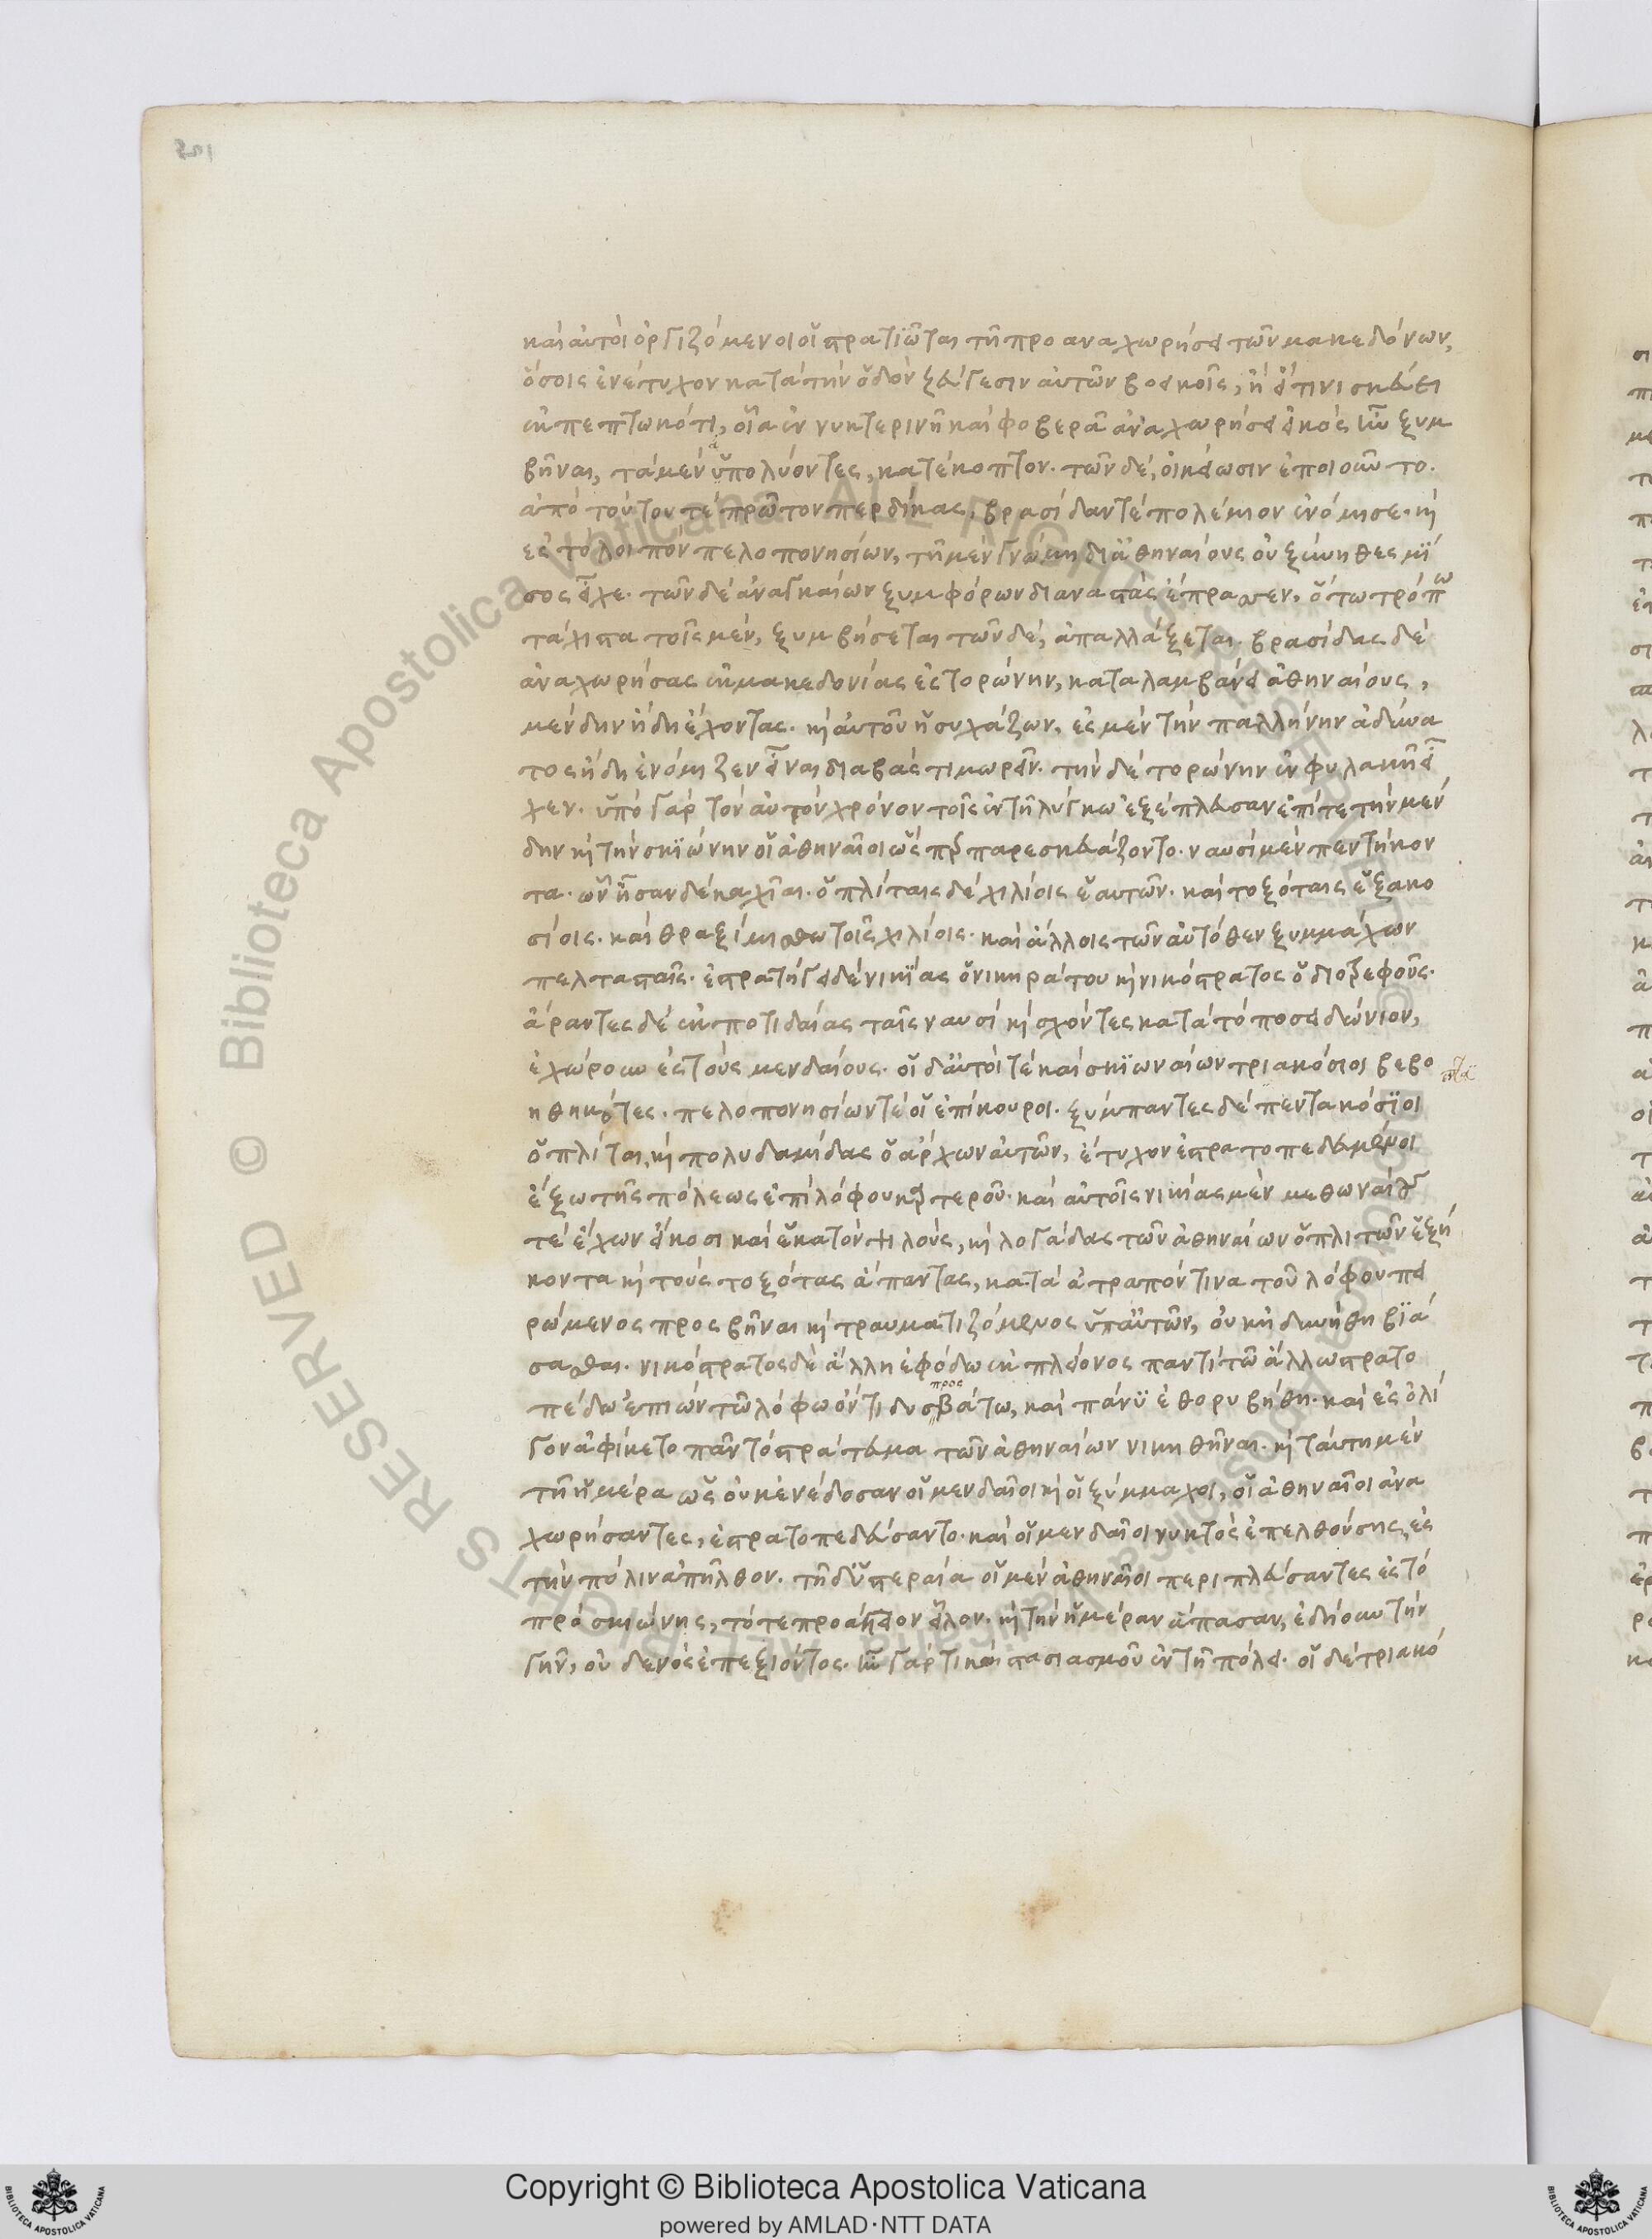 καὶ αὐτοὶ ὀργιζόμενοι οἱ στρατιῶται τῆ προαναχωρήσει τῶν μακεδόνων,
ὅσοις ἐνέτυχον κατὰ τὴν ὁδὸν ζεύγεσιν αὐτῶν βοεικοῖς, ἢ εἴ τινι σκεύει
ἐκπεπτωκότι, οἷα ἐν νυκτερινῆ καὶ φοβερᾶ ἀναχωρήσει εἰκὸς ἦν ξυμ
βῆναι, τὰ μὲν ὑπολύοντες, κατέκοπτον. τῶν δὲ, οἰκείωσιν ἐποιοῦντο.
ἀπὸ τούτου τὲ πρῶτον περδίκας, βρασίδαν τὲ πολέμιον ἐνόμισε. καὶ
ἐς τὸ λοιπὸν πελοπονησίων, τῆ μὲν γνώμη δι' ἀθηναίους οὐ ξύνηθες μῖ
σος εἶχε. τῶν δὲ ἀναγκαίων ξυμφόρων διαναστὰς ἔπρασσεν, ὅτω τρόπω
τάχιστα τοῖς μὲν, ξυμβήσεται τῶν δὲ, ἀπαλλάξεται. βρασίδας δὲ
ἀναχωρήσας ἐκ μακεδονίας ἐς τορώνην, καταλαμβάνει ἀθηναίους,
μένδην ἤδη ἔχοντας. καὶ αὐτοῦ ἡσυχάζων, ἐς μὲν τὴν παλλήνην ἀδύνα
τος ἤδη ἐνόμιζεν εἶναι διαβὰς τιμωρεῖν. τὴν δὲ τορώνην ἐν φυλακῆ εἶ
χεν. ὑπὸ γὰρ τὸν αὐτὸν χρόνον τοῖς ἐν τῆ λύγκω ἐξέπλευσαν ἐπί τε τὴν μέν
δην καὶ τὴν σκιώνην οἱ ἀθηναῖοι ὥσπερ παρεσκευάζοντο. ναυσὶ μὲν πεντήκον
τα. ὧν ἦσαν δέκα χῖαι. ὁπλίταις δὲ χιλίοις ἑαυτῶν. καὶ τοξόταις ἑξακο
σίοις. καὶ θραξὶ μισθωτοῖς χιλίοις. καὶ ἄλλοις τῶν αὐτόθεν ξυμμάχων
πελτασταῖς. ἐστρατήγει δὲ νικίας ὁ νικηράτου καὶ νικόστρατος ὁ διοτρεφοῦς.
ἄραντες δὲ ἐκ ποτιδαίας ταῖς ναυσὶ καὶ σχόντες κατὰ τὸ ποσειδώνιον,
ἐχώρουν ἐς τοὺς μενδαίους. οἱ δ' αὐτοί τὲ καὶ σκιωναίων τριακόσιοι βεβο
ηθηκότες. πελοπονησίων τὲ οἱ ἐπίκουροι. ξύμπαντες δὲ πεντακόσιοι
ὁπλῖται, καὶ πολυδαμίδας ὁ ἄρχων αὐτῶν, ἔτυχον ἐστρατοπεδευμένοι
ἔξω τῆς πόλεως ἐπὶ λόφου καρτεροῦ. καὶ αὐτοῖς νικίας μὲν μεθωναίους
τὲ ἔχων εἴκοσι καὶ ἑκατὸν ψιλοὺς, καὶ λογάδας τῶν ἀθηναίων ὁπλιτῶν ἑξή
κοντα καὶ τοὺς τοξότας ἅπαντας, κατὰ ἀτραπόν τινα τοῦ λόφου πει
ρώμενος προσβῆναι καὶ τραυματιζόμενος ὑπ' αὐτῶν, οὐκ ἠδυνήθη βιά
σασθαι. νικόστρατος δὲ ἄλλη ἐφόδω ἐκ πλείονος παντὶ τῶ ἄλλω στρατο
πέδω ἐπιὼν τῶ λόφω ὄντι δυσπροσβάτω, καὶ πάνυ ἐθορυβήθη. καὶ ἐς ὀλί
γον ἀφίκετο πᾶν τὸ στράτευμα τῶν ἀθηναίων νικηθῆναι. καὶ ταύτη μὲν
τῆ ἡμέρα ὡς οὐκ ἐνέδοσαν οἱ μενδαῖοι καὶ οἱ ξύμμαχοι, οἱ ἀθηναῖοι ἀνα
χωρήσαντες, ἐστρατοπεδεύσαντο. καὶ οἱ μενδαῖοι νυκτὸς ἐπελθούσης, ἐς
τὴν πόλιν ἀπῆλθον. τῆ δ' ὑστεραία οἱ μὲν ἀθηναῖοι περιπλεύσαντες ἐς τὸ
πρὸ σκιώνης, τό τε προάστειον εἷλον. καὶ τὴν ἡμέραν ἅπασαν, ἐδήουν τὴν
γῆν, οὐδενὸς ἐπεξιόντος. ἦν γάρ τι καὶ στασιασμοῦ ἐν τῆ πόλει. οἱ δὲ τριακό
Copyright © Biblioteca Apostolica Vaticana
powered by AMLAD·NTT DATA